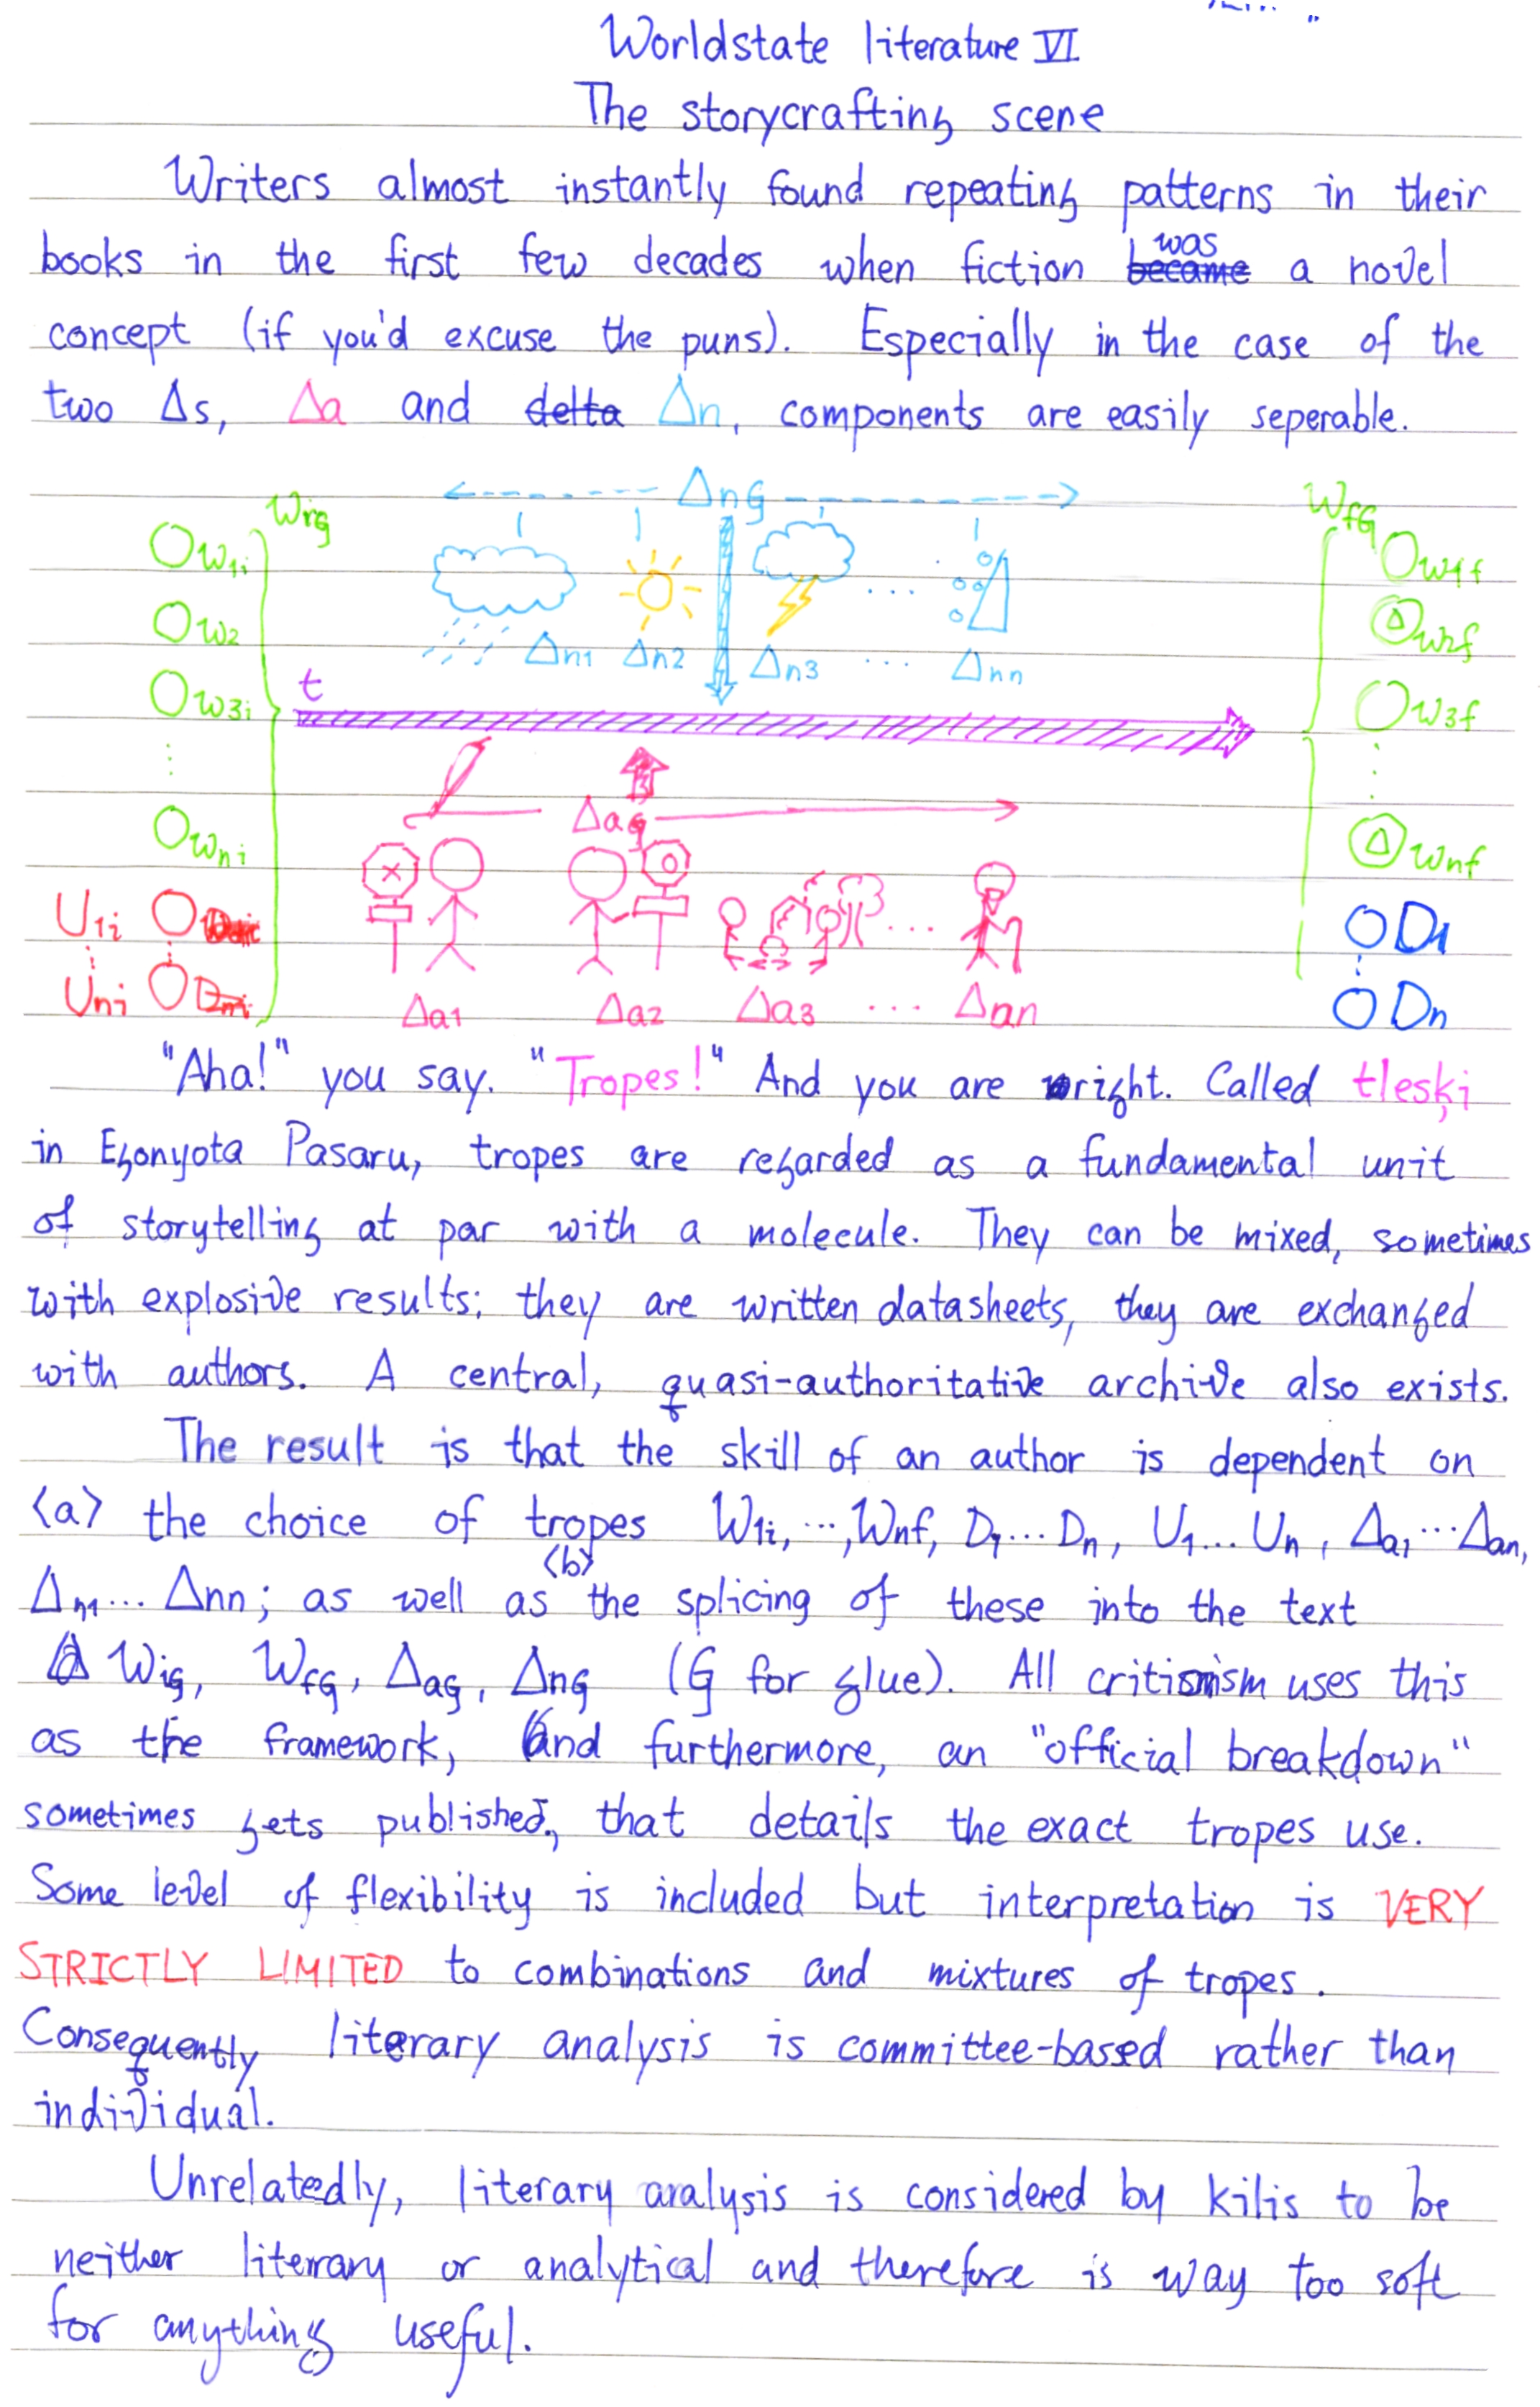 Worldstate literature VI
The storycrafting scene
Writers almost instantly found repeating patterns in their
books in the first few decades when fiction became was a novel
concept (if you'd excuse the puns). Especially in the case of the
two Δs, Δa and delta Δn, components are easily seperable.
ΔnG
WiG
WfG
W1i
W2
W3i
⋮
Wni
U1i
⋮
Uni
Δn1 Δn2 Δn3 ... Δnn
t
ΔaG
Δa1 Δa2 Δa3 ... Δan
W1f
W2f
W3f
⋮
Wnf
D1
⋮
Dn
"Aha!" you say. "Tropes!" And you are right. Called tleşķi
in Egonyota Pasaru, tropes are regarded as a fundamental unit
of storytelling at par with a molecule. They can be mixed, sometimes
with explosive results; they are written datasheets, they are exchanged
with authors. A central, quasi-authoritative archive also exists.
The result is that the skill of an author is dependent on
<a> the choice of tropes W1i, ..., Wnf, D1... Dn, U1... Un, Δa1 ... Δan,
Δn1... Δnn; as well as <b> the splicing of these into the text
WiG, WfG, ΔaG, ΔnG (G for glue). All critisism uses this
as the framework, and furthermore, an "official breakdown"
sometimes gets published, that details the exact tropes use.
Some level of flexibility is included but interpretation is VERY
STRICTLY LIMITED to combinations and mixtures of tropes.
Consequently literary analysis is committee-based rather than
individual.
Unrelatedly, literary analysis is considered by kilis to be
neither literrary or analytical and therefore is way too soft
for anything useful.